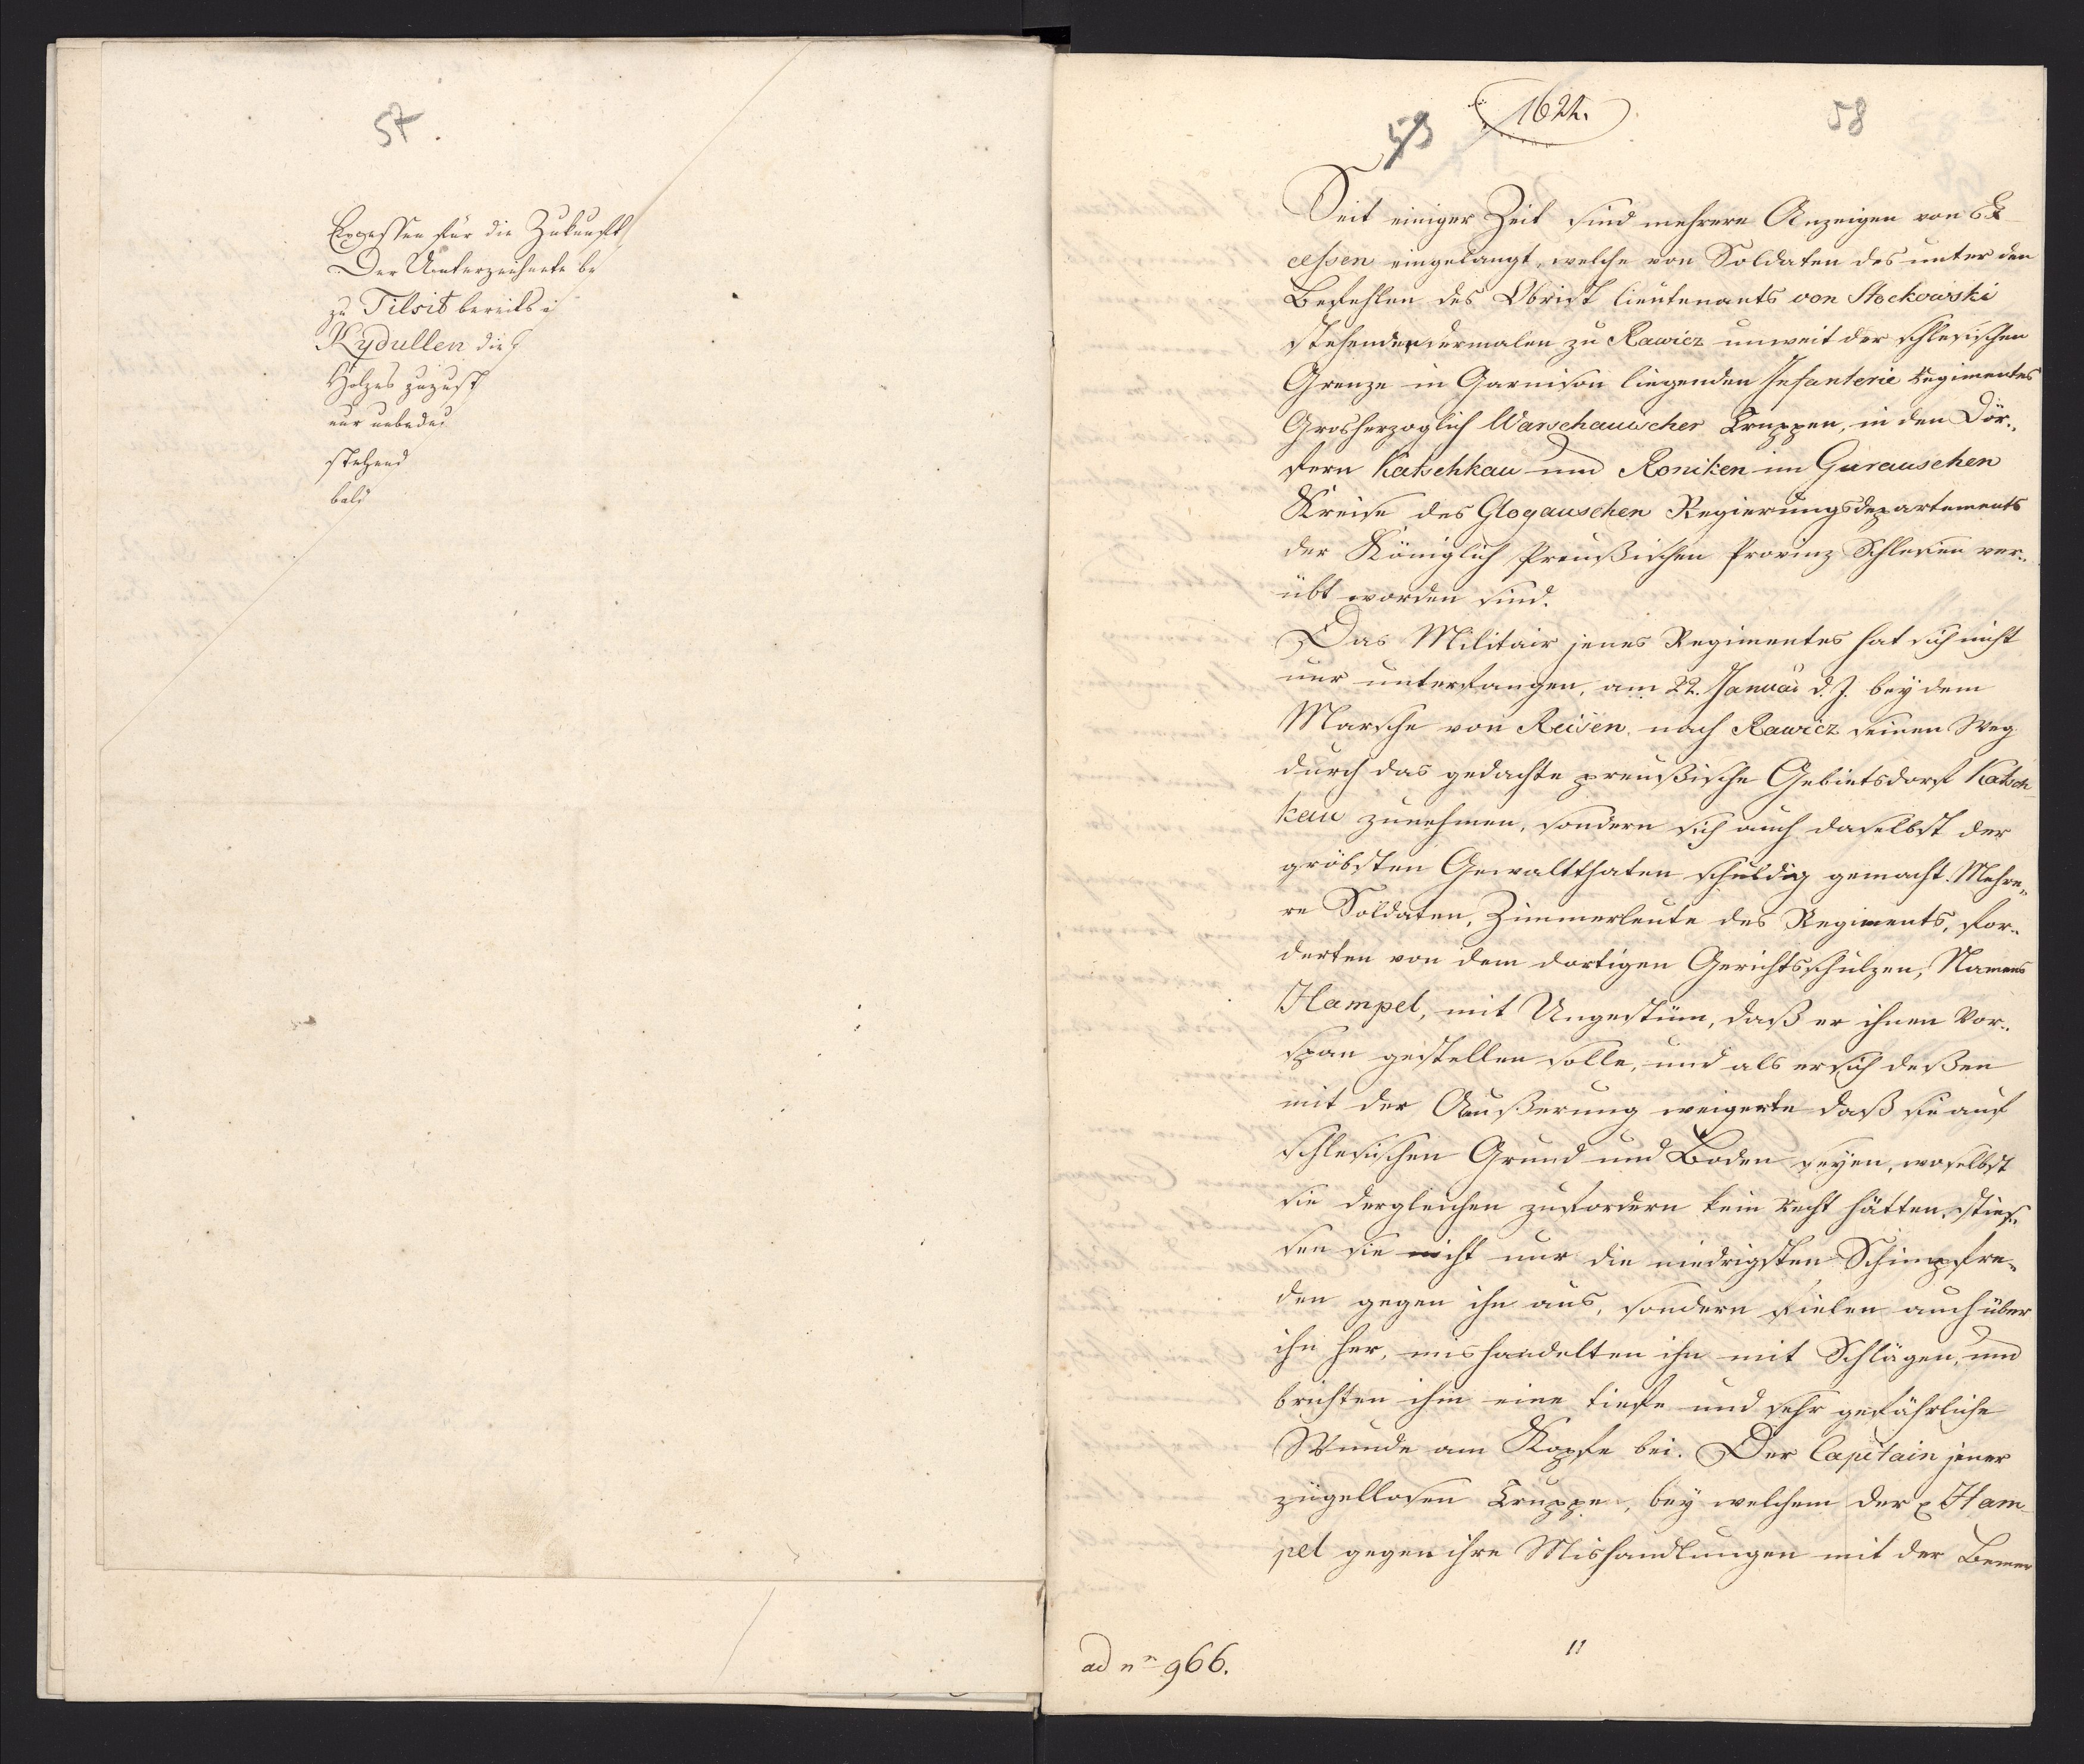 57.
Excessen für die Zukunft
Der Unterzeichnete be
zu Tilsit bereits i
Kydullen die
Holzes zuzust
nur unbedeu
stehend
bald
1622.
58
Seit einiger Zeit sind mehrere Anzeigen von Ex
cessen eingelangt, welche von Soldaten des unter den
Befehlen des Obrist lieutenants von Stockowski
stehenden dermalen zu Rawicz unweit der schlesischen
Grenze in Garnison liegenden Infanterie Regimentes
Grosherzoglich Warschauischer Truppen, in den Dör„
fern Katschkau und Roniken im Gurauschen
Kreise des Glogauschen Regierungsdepartements
der Königlich Preußischen Provinz Schlesien ver„
übt worden sind.
Das Militair jenes Regimentes hat sich nicht
nur unterfangen, am 22. Januar d. J. bey dem
Marsche von Reisen nach Rawicz seinen Weg
durch das gedachte preußische Gebietsdorf Katsch
kau zunehmen, sondern sich auch daselbst der
gröbsten Gewaltthaten schuldig gemacht. Mehre„
re Soldaten, Zimmerleute des Regiments, for„
derten von dem dortigen Gerichtsschulzen, Namens
Hampel, mit Ungestüm, daß er ihnen Vor„
span gestellen solle, und als er sich deßen
mit der Aeußerung weigerte daß sie auf
schlesischen Grund und Boden seyen, woselbst
sie dergleichen zufordern kein Recht hätten, stieß„
sen sie nicht nur die niedrigsten Schimpfre„
den gegen ihn aus, sondern fielen auch über
ihn her, mishandelten ihn mit Schlägen, und
brachten ihm eine tiefe und sehr gefährliche
Wunde am Kopfe bei. Der Capitain jener
zügellosen Truppe, bey welchem der p Ham
pel gegen ihre Mishandlungen mit der Bemer
ad nr 966.